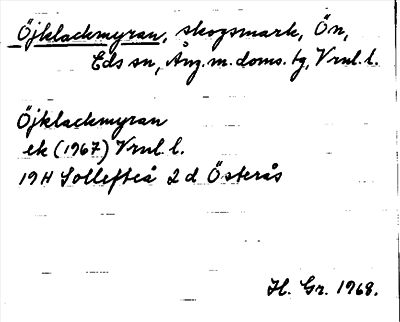 Öjklackmyran, skogsmark, Ön,
Eds sn, Ång. m. doms. tg, Vrnl. l.
Öjklackmyran
ek (1967) Vrnl. l.
19H Sollefteå 2 d Österås
H. Gr. 1968.